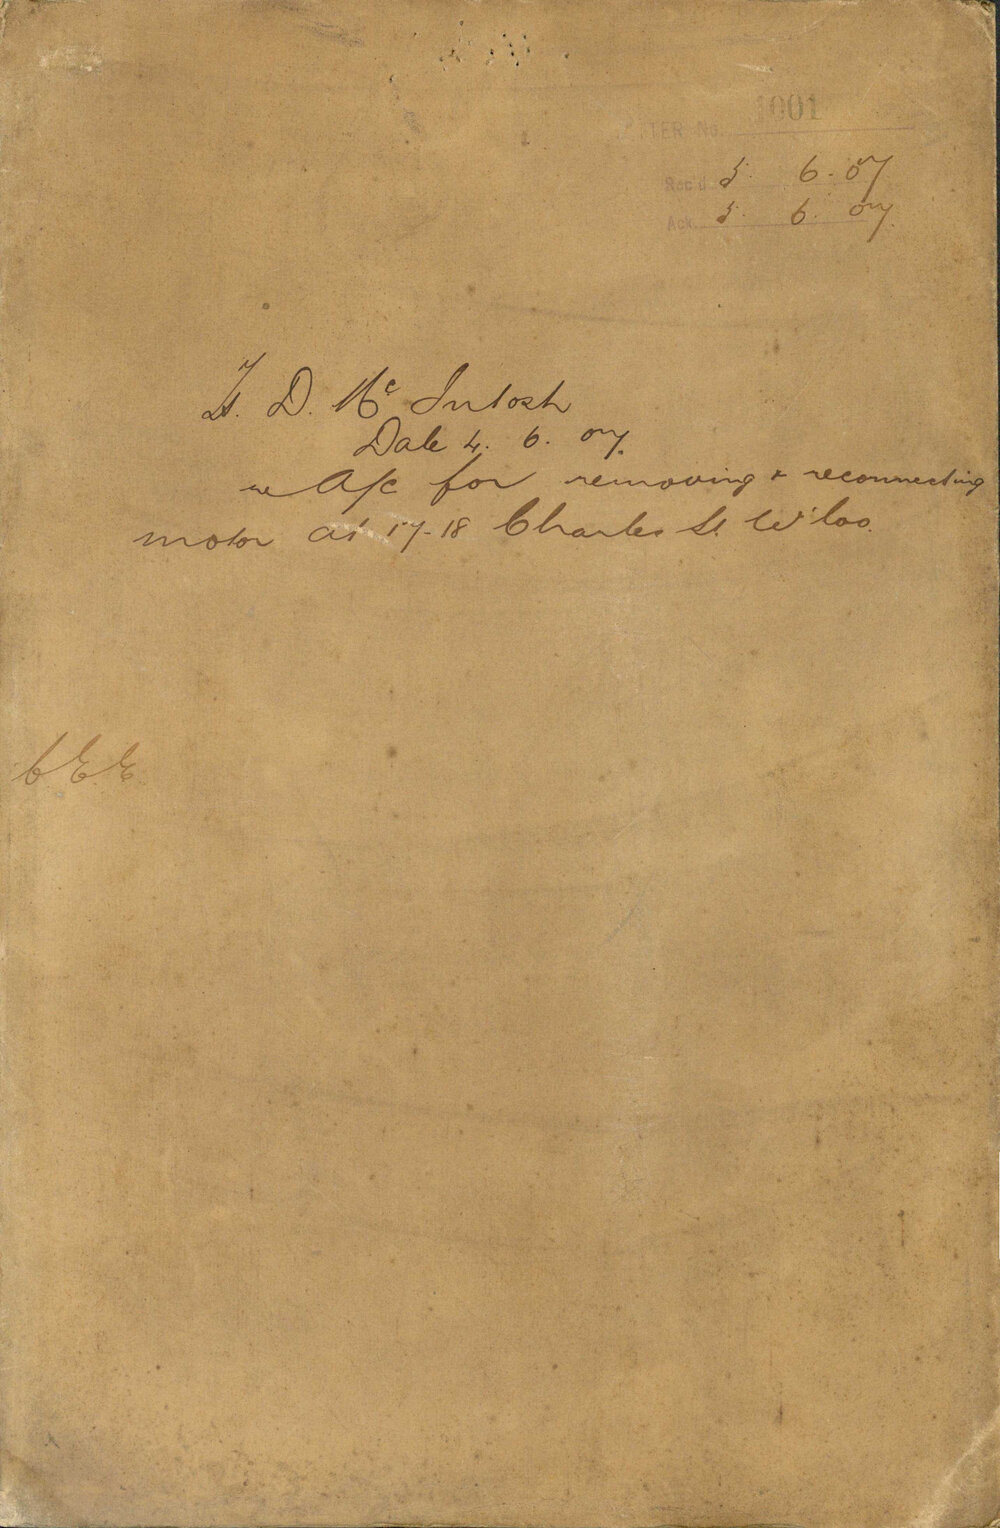 LETTER No. 1001
Rec'd 5. 6. 07
Ack. 5. 6. 07
D. McIntosh
Date 4. 6. 07.
re A/c for removing & reconnecting
motor at 17-18 Charles St. W'loo.
C.E.E.